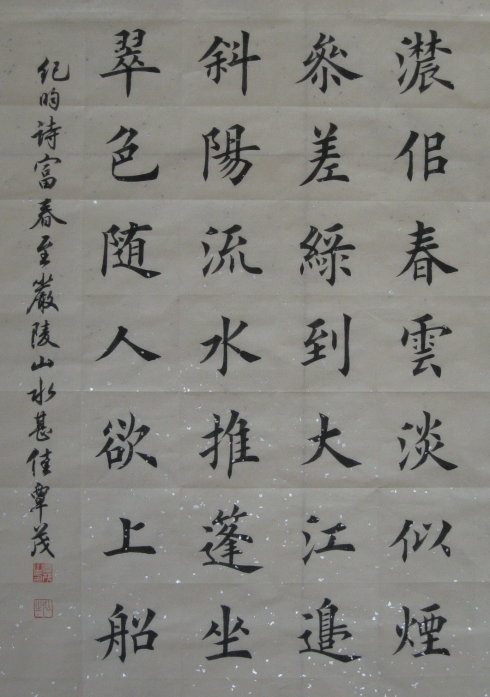 濃佀春雲淡似煙
叅差綠到大江邉
斜陽流水推蓬坐
翠色随人欲上船
紀昀詩富春至嚴陵山水甚佳覃茂